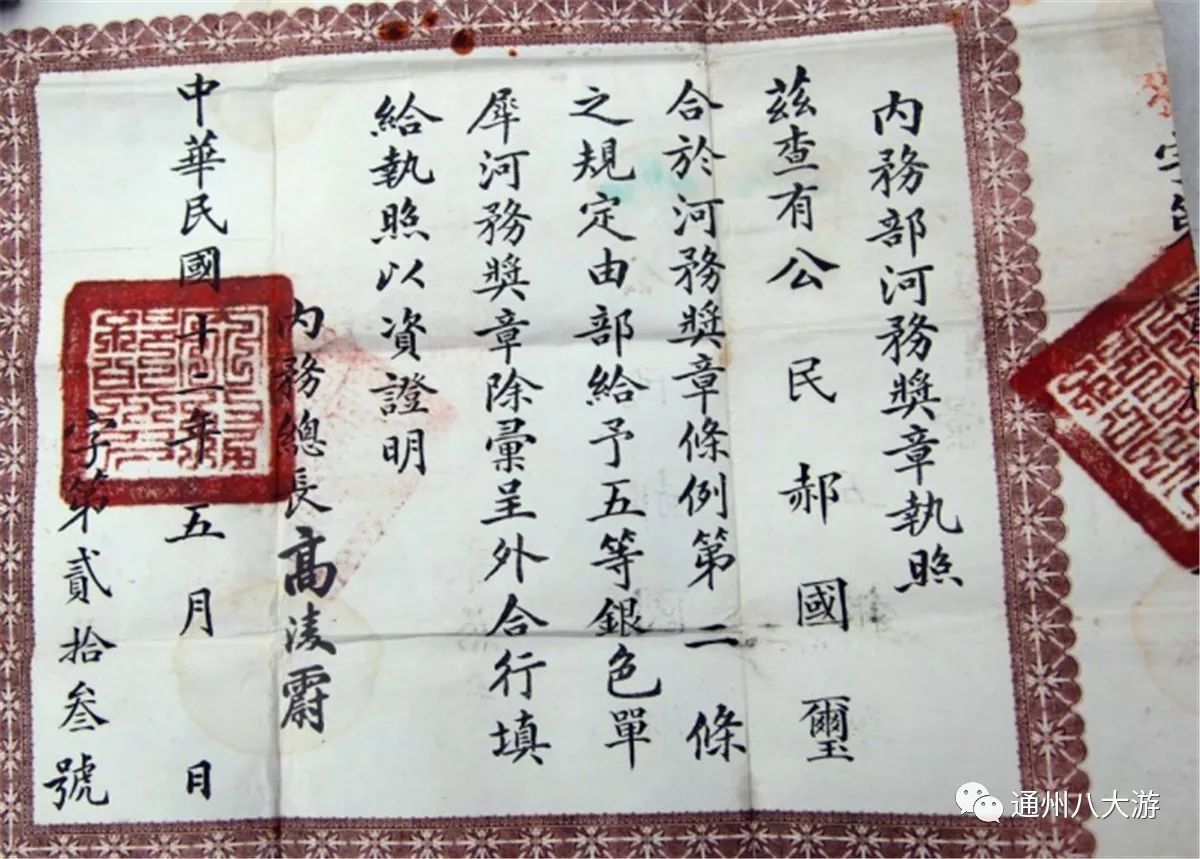 字
内務部河務獎章執照
茲查有公民郝國璽
合於河務獎章條例第二條
之規定由部給予五等銀色單
犀河務獎章除彙呈外合行填
給執照以資證明
内務總長高凌霨
中華民國十二年五月 日
字第貳拾叁號
通州八大游